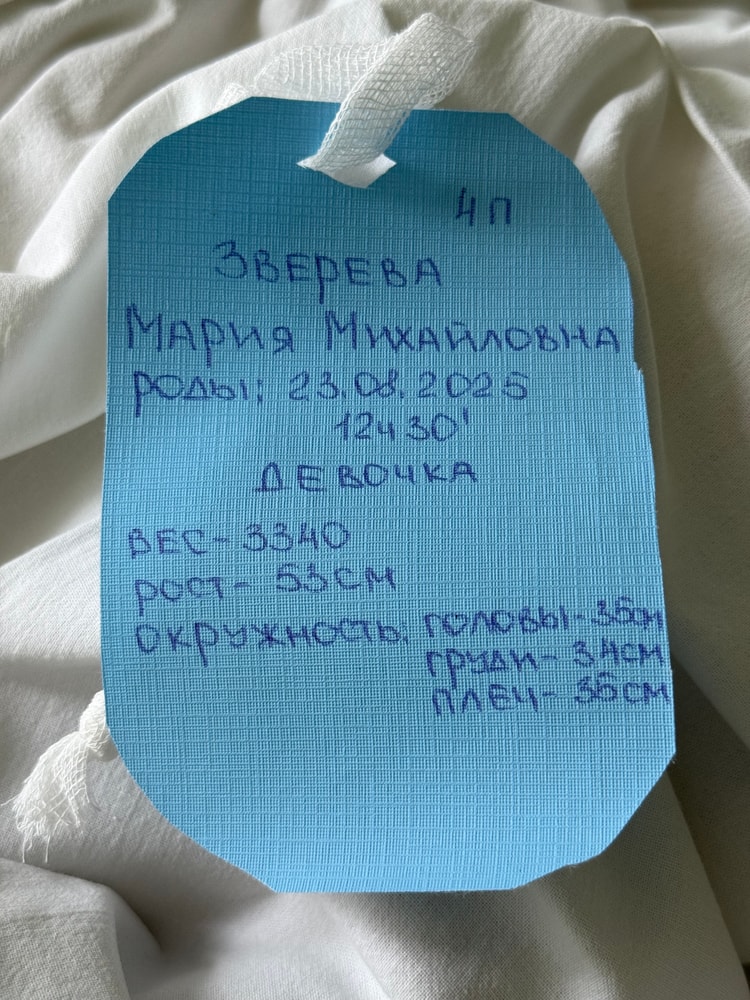 4 П
ЗВЕРЕВА
МАРИЯ МИХАЙЛОВНА
РОДЫ: 23.08.2025
12ч 30'
ДЕВОЧКА
ВЕС - 3340
РОСТ - 53 СМ
ОКРУЖНОСТЬ: ГОЛОВЫ - 35см
ГРУДИ - 34см
ПЛЕЧ - 36 см